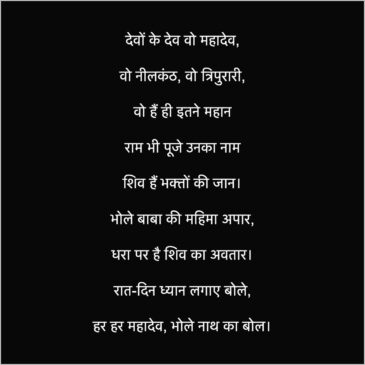 देवों के देव वो महादेव,
वो नीलकंठ, वो त्रिपुरारी,
वो हैं ही इतने महान
राम भी पूजे उनका नाम
शिव हैं भक्तों की जान।
भोले बाबा की महिमा अपार,
धरा पर है शिव का अवतार।
रात-दिन ध्यान लगाए बोले,
हर हर महादेव, भोले नाथ का बोल।